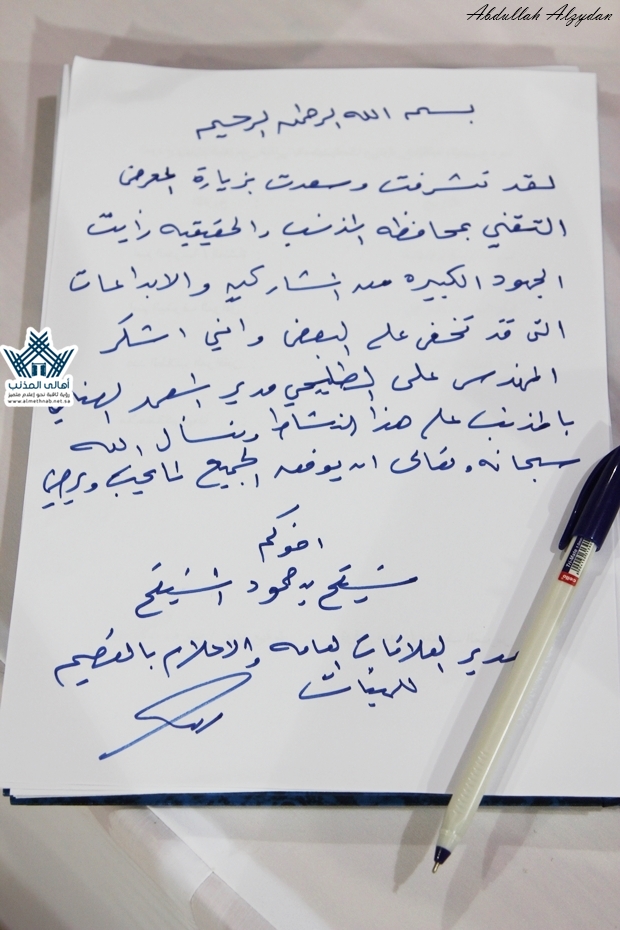 Abdullah Alzydan
بسم الله الرحمن الرحيم
لقد تشرفت وسعدت بزيارة المعرض
التقني بمحافظه المذنب والحقيقيه رايت
الجهود الكبيره من المشاركين والابداعات
التى قد تخفى على البعض وانني اشكر
المهندس على مدير المعهد المهني
بالمذنب على هذا النشاط ونسأل الله
سبحانه وتعالى ان يوفق الجميع لما يحب ويرضى
اخوكم
بن حمود
مدير العلاقات العامه والاعلام بالقصيم
أهالي المذنب
رؤية ثاقبة نحو إعلام متميز
www.almethnab.net.sa